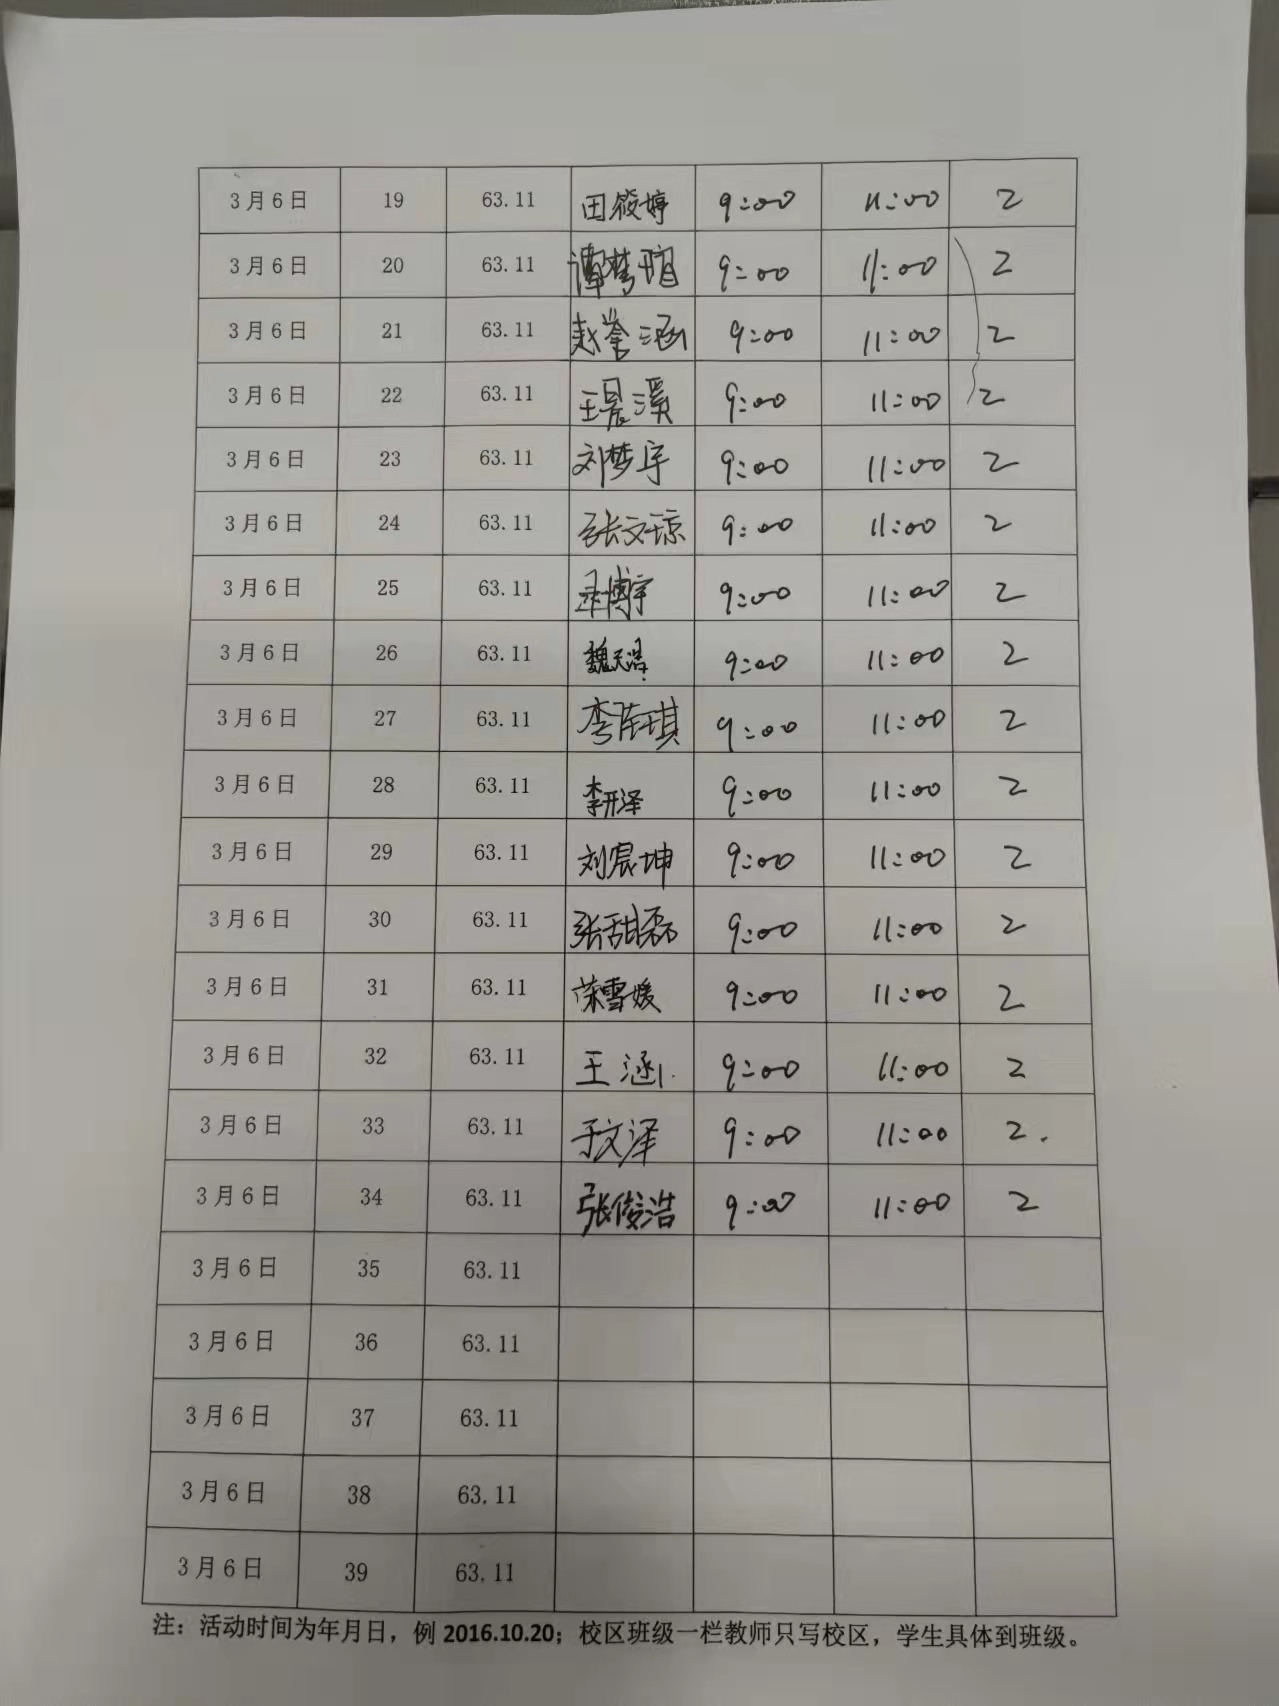 3月6日 19 63.11 田筱婷 9:00 11:00 2
3月6日 20 63.11 谭梦瑄 9:00 11:00 2
3月6日 21 63.11 赵 涵 9:00 11:00 2
3月6日 22 63.11 王晨溪 9:00 11:00 2
3月6日 23 63.11 刘梦宇 9:00 11:00 2
3月6日 24 63.11 张文琼 9:00 11:00 2
3月6日 25 63.11 博宇 9:00 11:00 2
3月6日 26 63.11 魏天浩 9:00 11:00 2
3月6日 27 63.11 李 琪 9:00 11:00 2
3月6日 28 63.11 李开泽 9:00 11:00 2
3月6日 29 63.11 刘宸坤 9:00 11:00 2
3月6日 30 63.11 张甜磊 9:00 11:00 2
3月6日 31 63.11 荣雪媛 9:00 11:00 2
3月6日 32 63.11 王涵 9:00 11:00 2
3月6日 33 63.11 于文泽 9:00 11:00 2.
3月6日 34 63.11 张俊浩 9:00 11:00 2
3月6日 35 63.11
3月6日 36 63.11
3月6日 37 63.11
3月6日 38 63.11
3月6日 39 63.11
注：活动时间为年月日，例 2016.10.20；校区班级一栏教师只写校区，学生具体到班级。